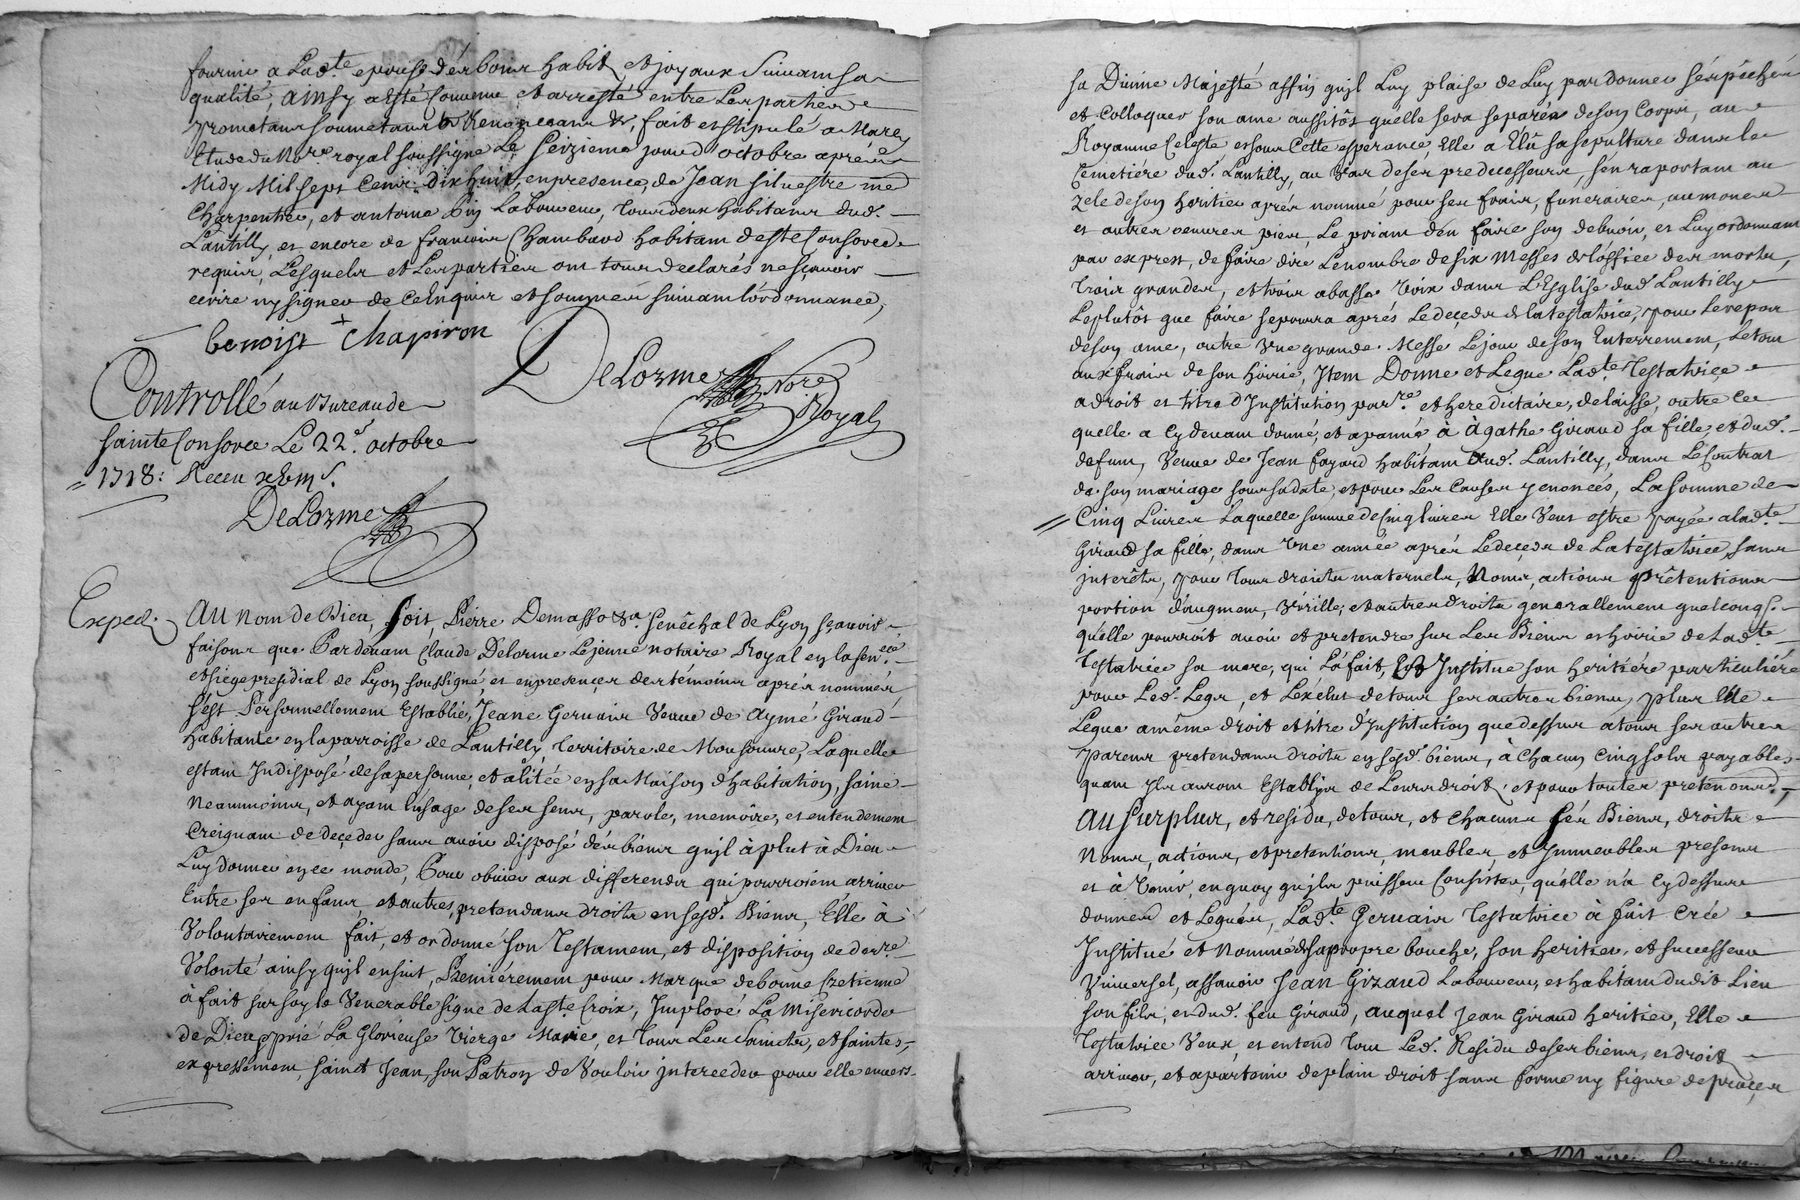 fournir a Lad.te epouse dés bons habits et joyaux Suivant sa
qualité, ainsy a esté convenu et arresté entre Les parties
promettans soumettans &c Renonceans &c, fait et stipulé a Marcy
Etude du No.re royal soussigné Le Seizieme jour d'octobre aprés
Midy Mil sept Cent Dix huit, en presence, de Jean silvestre me
Charpentier, et antoine Laboureur, tous deux habitans dud.
Lantilly, et encore de françois Chambaud habitant de ste Consorce
requis, Lesquels et Les parties ont tous declarés ne sçavoir
ecrire ny signer de ce Enquis et sommés suivant L'ordonnance,
benoist + Chapiron
DeLorme No.re Royal
Controllé au Bureau de
sainte Consorce Le 22.e octobre
1718: Receu
DeLorme
Exped.
Au nom de Dieu, soit, Pierre Demasso Sr. sénêchal de Lyon sçavoir
faisons que Pardevant Claude Delorme Le jeune notaire Royal en la sen.ccé
et siége presidial de Lyon soussigné, et en presences des témoins aprés nommés
s'est Personnellement Establie, Jeane Gervais Veuve de Aymé Giraud
habitante en la parroisse de Lantilly territoire de Monsouvre, Laquelle
estant Indisposé de sa personne, et alitée en sa Maison d'habitation, saine
Neanmoins, et ayant l'usage de ses sens, parole, memoire, et entendement
Creignant de deçeder sans avoir disposé dés biens qu'il à plut à Dieu
Luy donner en ce monde, Pour obvier aux differends qui pourroient arriver
Entre ses enfans, et autres, pretendans droits en sesd. Biens, Elle à
Volontairement fait, et ordonné son Testament, et disposition de der.re
Volonté ainsy qu'il ensuit, Premiérement pour Marque de bonne Cretienne
à fait sur soy le Venerable signe de La Ste Croix, Imploré La Misericorde
de Dieu, prié La Glorieuse Vierge Marie, et tous Les Saincts, et saintes,
expressément, sainct Jean, son Patron de Vouloir interceder pour elle envers
sa Divine Majesté affin qu'jl Luy plaise de Luy pardonner sés péchés
et Colloquer son ame aussitôt quélle sera separée de son Corps, au
Royaume Celeste et sous Cette esperance, Elle a Elû sa sepulture dans le
Cemetiére dud. Lantilly, au Vas de sés predecesseurs, s'en raportant au
zele de son heritier aprés nommé pour ses frais, funeraires, aumones
et autres oeuvres pies, Le priant d'en faire son debvoir, et Luy ordonnant
par exprest, de faire dire Le nombre de six Messes de L'office des morts,
trois grandes, et trois a basse Voix dans L'Eglise dud Lantilly
Le plutôt que faire se pourra aprés Le deçeds de la testatrice, pour Le repos
de son ame, outre Vne grande Messe Le jour de son Enterrement, Le tout
aux frais de son hoirie, Item Donne et Legue Lad.te testatriçe
a droit et titre d'Institution par.re et hereditaire, de laisse, outre Ce
quelle a Cydevant donné, et apanné à Agathe Giraud sa fille et dud.
defunt, Veuve de Jean fayard habitant dud. Lantilly, dans Le Contrat
de son mariage sous sa date, et pour Les Causes y enoncés, La somme de
Cinq Livres Laquelle somme de Cinq Livres Elle Veut estre payée a lad.te
Giraud sa fille, dans Vne année aprés Le deçeds de La testatrice, sans
interêts, pour tous droits maternels, Noms, actions prêtentions
portion d'augment, et autres droits generallement quelconqs.
quélle pourroit avoir et pretendre sur Les Biens et hoirie de Lad.te
Testatrice sa mere, qui L'à fait, Et Institue son heritiére particuliére
pour Led. Legs, et L'éxclut de tous ses autres biens, Plus Elle
Legue a même droit et titre d'Institution que dessus a tous ses autres
Parens pretendans droits en sesd. biens, à Chacun Cinq sols payables
quant jls auront Establys de Leurs droits, et pour toutes pretentions,
Au surplus, et residu, de tous, et chacuns sés Biens, droits
Noms, actions, et pretentions, meubles, et Immeubles presens
et à Venir, en quoy qu'jls puissent Consister, qu'elle n'a Cy dessus
donnés et Legués, Lad.te Gervais testatrice à fait Crée
Institué et Nommé de sa propre bouche, son heritier, et successeur
Vniversel, assavoir Jean Girard Laboureur, et habitant dudit Lieu
son fils, et dud. feu Giraud, auquel Jean Giraud heritier, Elle
Testatrice Veut, et entend tout Led. Residu de ses biens, et droits
arriver, et apartenir de plain droit sans forme ny figure de procés